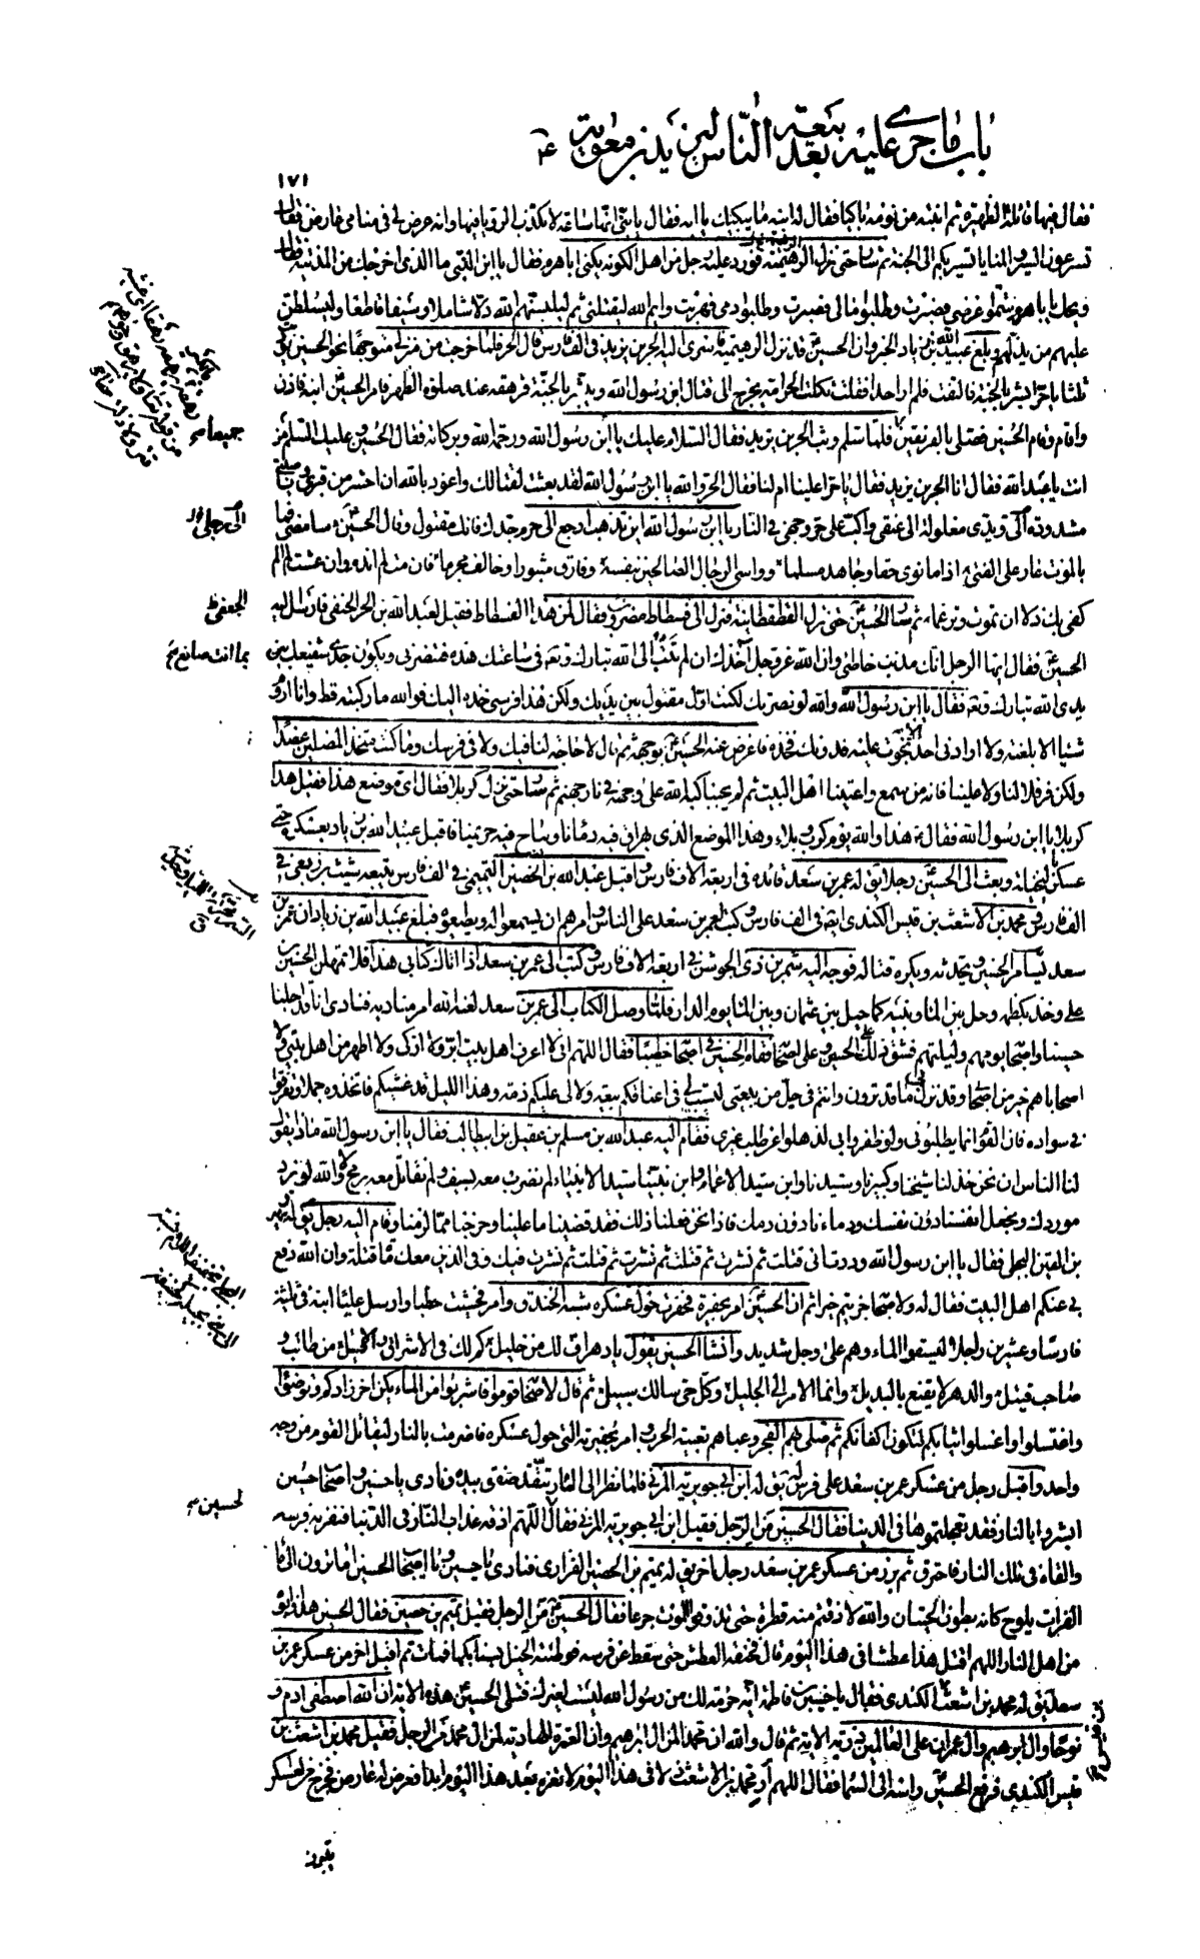 باب ما جرى عليه بعد بيعة الناس ليزيد بن معوية
١٧١
فقال فيها قائلة الظهيرة ثم انتبه من نومه باكيا فقال له ابنه ما يبكيك يا ابه فقال يا بنى انها ساعة لا تكذب الرؤيا فيها وانه عرض لى فى منامى عارض فقال
تسرعون السير والمنايا تسير بكم الى الجنة ثم سار حتى نزل الرهيمة فورد عليه رجل من اهل الكوفة يكنى ابا هرم فقال يا ابن النبى ما الذى اخرجك من المدينة فقال
ويحك يا با هرم شتموا عرضى فصبرت وطلبوا مالى فصبرت وطلبوا دمى فهربت وايم الله ليقتلنى ثم ليلبسنهم الله ذلا شاملا وسيفا قاطعا وليسلطن
عليهم من يذلهم وبلغ عبيد الله بن زياد الخبر وان الحسين قد نزل الرهيمة فاسرى اليه الحر بن يزيد فى الف فارس قال الحر فلما خرجت من منزلى متوجها نحو الحسين نوديت
ثلثا يا حر ابشر بالجنة فالتفت فلم ار احدا فقلت ثكلت الحر امه يخرج الى قتال ابن رسول الله ويبشر بالجنة فرهقه عند صلوة الظهر فامر الحسين ابنه فاذن
واقام وقام الحسين فصلى بالفريقين فلما سلم وثب الحر بن يزيد فقال السلام عليك يا ابن رسول الله ورحمة الله وبركاته فقال الحسين وعليك السلم من
انت يا عبد الله فقال انا الحر بن يزيد فقال يا حر اعلينا ام لنا فقال الحر والله يا ابن رسول الله لقد بعثت لقتالك واعوذ بالله ان احشر من قبرى وناصيتى
مشدودة الى ويدى مغلولة الى عنقى واكب على حر وجهى فى النار يا ابن رسول الله اين تذهب ارجع الى حرم جدك فانك مقتول وقال الحسين سامضى فما
بالموت عار على الفتى اذا ما نوى حقا وجاهد مسلما وواسى الرجال الصالحين بنفسه وفارق مثبورا وخالف مجرما فان مت لم اندم وان عشت لم الم
كفى بك ذلا ان تموت وترغما ثم سار الحسين حتى نزل القطقطانة فنزل الى فسطاط مضروب فقال لمن هذا الفسطاط فقيل لعبد الله بن الحر الحنفى فارسل اليه
الحسين فقال ايها الرجل انك مذنب خاطئ وان الله عز وجل آخذك ان لم تتب الى الله تبارك وتع فى ساعتك هذه فتنصرنى ويكون جدى شفيعك بين
يدى الله تبارك وتع فقال يا ابن رسول الله والله لو نصرتك لكنت اول مقتول بين يديك ولكن هذا فرسى خذه اليك فوالله ما ركبته قط وانا اروم
شيئا الا بلغته ولا ارادنى احد الا نجوت عليه فدونك فخذه فاعرض عنه الحسين بوجهه ثم قال لا حاجة لنا فيك ولا فى فرسك وما كنت متخذ المضلين عضدا
ولكن فر فلا لنا ولا علينا فانه من سمع واعيتنا اهل البيت ثم لم يجبنا كبه الله على وجهه فى نار جهنم ثم سار حتى نزل كربلا فقال اى موضع هذا فقيل هذا
كربلا يا ابن رسول الله فقال هذا والله يوم كرب وبلاء وهذا الموضع الذى يهراق فيه دماؤنا ويباح فيه حريمنا فاقبل عبيد الله بن زياد بعسكره حتى
عسكر بالنخيلة وبعث الى الحسين رجلا يق له عمر بن سعد قائده فى اربعة الاف فارس واقبل عبد الله بن الحصين التميمى فى الف فارس يتبعه شبث بن ربعى فى
الف فارس ومحمد بن الاشعث بن قيس الكندى ايضا فى الف فارس وكتب لعمر بن سعد على الناس وامرهم ان يسمعوا له ويطيعوه فبلغ عبيد الله بن زياد ان عمر بن
سعد يسامر الحسين ويحدثه ويكره قتاله فوجه اليه شمر بن ذى الجوشن فى اربعة الاف فارس وكتب الى عمر بن سعد اذا اتاك كتابى هذا فلا تمهلن الحسين
على وخذ بكظمه وحل بين الماء وبينه كما حيل بين عثمان وبين الماء يوم الدار فلما وصل الكتاب الى عمر بن سعد لعنه الله امر مناديه فنادى انا قد اجلنا
حسينا واصحابه يومهم وليلتهم فشق ذلك على الحسين وعلى اصحابه فقام الحسين فى اصحابه خطيبا فقال اللهم انى لا اعرف اهل بيت ابر ولا ازكى ولا اطهر من اهل بيتى ولا
اصحابا هم خير من اصحابى وقد نزل بى ما قد ترون وانتم فى حل من بيعتى ليست لى فى اعناقكم بيعة ولا لى عليكم ذمة وهذا الليل قد غشيكم فاتخذوه جملا وتفرقوا
فى سواده فان القوم انما يطلبونى ولو ظفروا بى لذهلوا عن طلب غيرى فقام اليه عبد الله بن مسلم بن عقيل بن ابيطالب فقال يا ابن رسول الله ماذا يقول
لنا الناس ان نحن خذلنا شيخنا وكبيرنا وسيدنا وابن سيد الاعمام وابن نبينا سيد الانبياء لم نضرب معه بسيف ولم نقاتل معه برمح لا والله لو نرد
موردك ونجعل انفسنا دون نفسك ودماءنا دون دمك فاذا نحن فعلنا ذلك فقد قضينا ما علينا وخرجنا مما لزمنا وقام اليه رجل يق له زهير
بن القين البجلى فقال يا ابن رسول الله وددت انى قتلت ثم نشرت ثم قتلت ثم نشرت ثم قتلت ثم نشرت فيك وفى الذين معك مائة قتلة وان الله دفع
بى عنكم اهل البيت فقال له ولاصحابه جزيتم خيرا ثم ان الحسين امر بحفيرة فحفرت حول عسكره شبه الخندق وامر فحشيت حطبا وارسل عليا ابنه فى ثلثين
فارسا وعشرين راجلا ليستقوا الماء وهم على وجل شديد وانشا الحسين يقول يا دهر اف لك من خليل كم لك فى الاشراق والاصيل من طالب و
صاحب قتيل والدهر لا يقنع بالبديل وانما الامر الى الجليل وكل حى سالك سبيلى ثم قال لاصحابه قوموا فاشربوا من الماء يكن اخر زادكم وتوضئوا
واغتسلوا واغسلوا ثيابكم لتكون اكفانكم ثم صلى بهم الفجر وعباهم تعبية الحرب وامر بحفيرته التى حول عسكره فاضرمت بالنار ليقاتل القوم من وجه
واحد واقبل رجل من عسكر عمر بن سعد على فرس له يق له ابن ابى جويرية المزنى فلما نظر الى النار تتقد صفق بيده ونادى يا حسين واصحاب حسين
ابشروا بالنار فقد تعجلتموها فى الدنيا فقال الحسين من الرجل فقيل ابن ابى جويرية المزنى فقال اللهم اذقه عذاب النار فى الدنيا فنفر به فرسه
والقاه فى تلك النار فاحترق ثم برز من عسكر عمر بن سعد رجل اخر يق له تميم بن الحصين الفزارى فنادى يا حسين ويا اصحاب الحسين اما ترون الى ماء
الفرات يلوح كانه بطون الحيتان والله لا ذقتم منه قطرة حتى تذوقوا الموت جرعا فقال الحسين من الرجل فقيل تميم بن حصين فقال الحسين هذا وابوه
من اهل النار اللهم اقتل هذا عطشا فى هذا اليوم قال فخنقه العطش حتى سقط عن فرسه فوطئته الخيل بسنابكها فمات ثم اقبل اخر من عسكر عمر بن
سعد يق له محمد بن اشعث الكندى فقال يا حسين بن فاطمة اية حرمة لك من رسول الله ليست لغيرك فتلى الحسين هذه الاية ان الله اصطفى ادم و
نوحا وال ابرهيم وال عمران على العالمين ذرية الاية ثم قال والله ان محمدا لمن ال ابرهيم وان العترة الهادية لمن ال محمد من الرجل فقيل محمد بن اشعث بن
قيس الكندى فرفع الحسين راسه الى السما فقال اللهم ار محمد بن الاشعث ذلا فى هذا اليوم لا تعزه بعد هذا اليوم ابدا فعرض له عارض فخرج من العسكر
جميعا
الجعفى
بما انت صانع
لحسين
يتبرز